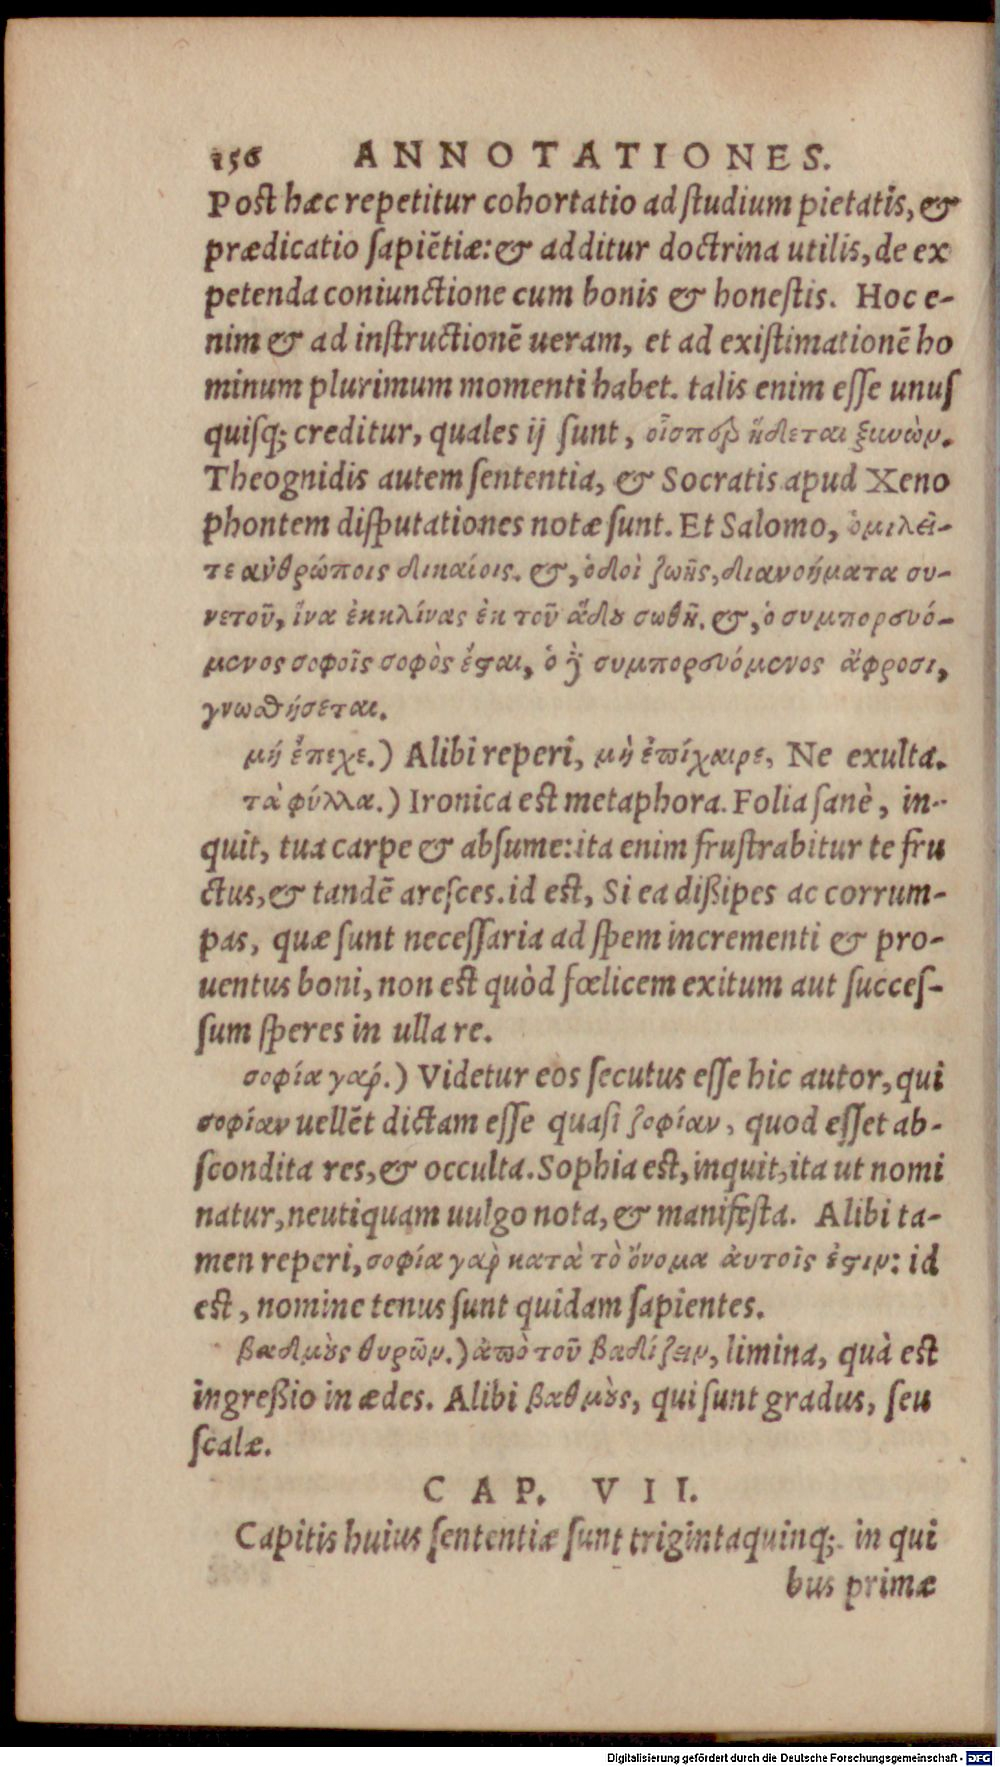 156 ANNOTATIONES.
Post hæc repetitur cohortatio ad studium pietatis, &
prædicatio sapiētiæ: & additur doctrina utilis, de ex
petenda coniunctione cum bonis & honestis. Hoc e-
nim & ad instructionē ueram, et ad existimationē ho
minum plurimum momenti habet. talis enim esse unus
quisq; creditur, quales ij sunt, οἷσπερ ἥδεται ξυνών.
Theognidis autem sententia, & Socratis apud Xeno
phontem disputationes notæ sunt. Et Salomo, ὁμιλεῖ-
τε ἀνθρώποις δικαίοις. &, ὁδοὶ ζωῆς, διανοήματα συ-
νετοῦ, ἵνα ἐκκλίνας ἐκ τοῦ ᾅδου σωθῇ. &, ὁ συμπορευό-
μενος σοφοῖς σοφὸς ἔσται, ὁ δὲ συμπορευόμενος ἄφροσι,
γνωσθήσεται.
μή ἔπεχε.) Alibi reperi, μὴ ἐπίχαιρε, Ne exulta.
τὰ φύλλα.) Ironica est metaphora. Folia sanè, in-
quit, tua carpe & absume: ita enim frustrabitur te fru
ctus, & tandē aresces. id est, Si ea dißipes ac corrum-
pas, quæ sunt necessaria ad spem incrementi & pro-
uentus boni, non est quòd fœlicem exitum aut succes-
sum speres in ulla re.
σοφία γαρ́.) Videtur eos secutus esse hic autor, qui
σοφίαν uellēt dictam esse quasi ζοφίαν, quod esset ab-
scondita res, & occulta. Sophia est, inquit, ita ut nomi
natur, neutiquam uulgo nota, & manifesta. Alibi ta-
men reperi, σοφία γαρ̀ κατὰ τὸ ὄνομα ἀυτοῖς ἐστιν: id
est, nomine tenus sunt quidam sapientes.
βαδμοὺς θυρῶν.) ἀπὸ τοῦ βαδίζειν, limina, quà est
ingreßio in ædes. Alibi βαθμοὺς, qui sunt gradus, seu
scalæ.
CAP. VII.
Capitis huius sententiæ sunt trigintaquinq;. in qui
bus primæ
Digitalisierung gefördert durch die Deutsche Forschungsgemeinschaft - DFG